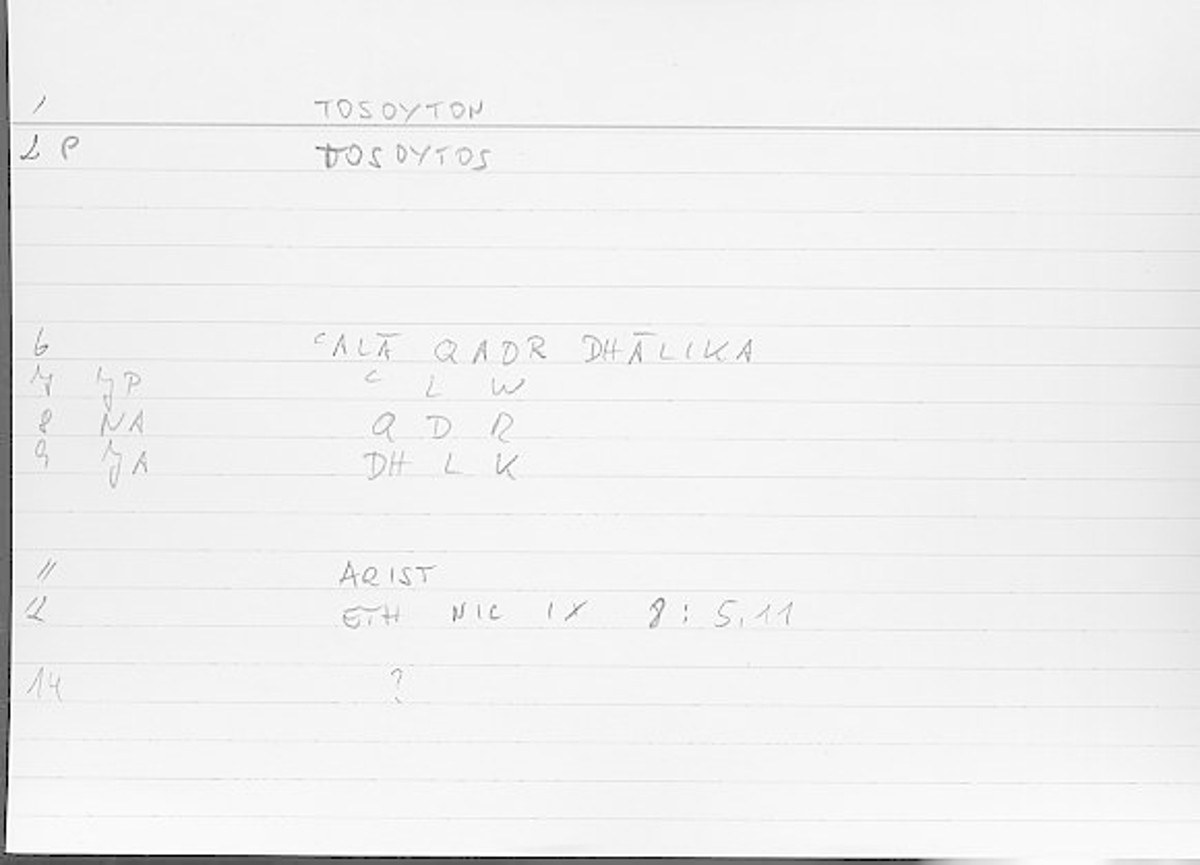 1 TOSOYTON
2 P TOSOYTOS
6 ʿALĀ QADR DHĀLIKA
7 JP ʿ L W
8 NA Q D R
9 JA DH L K
11 ARIST
12 ETH NIC IX 8 : 5,11
14 ?